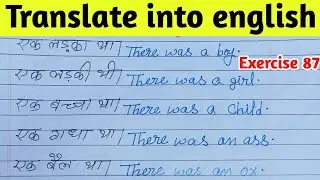 Translate into english
एक लड़का था। There was a boy.
Exercise 87
एक लड़की थी। There was a girl.
एक बच्चा था। There was a child.
एक गधा था। There was an ass.
एक बैल था। There was an ox.